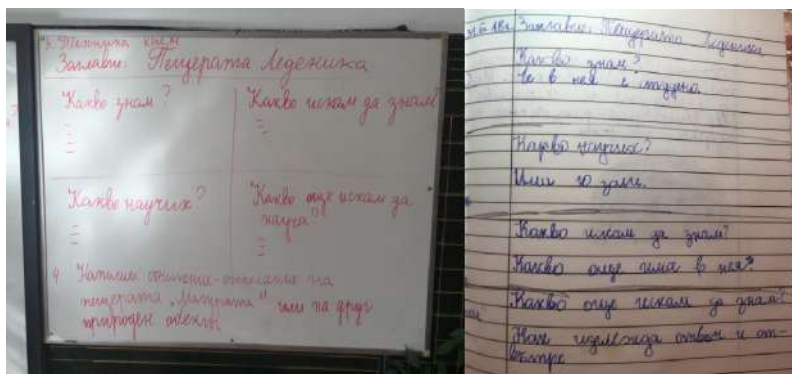 3. Техника
Заглавие: Пещерата Леденика
Какво знам?
Какво искам да знам?
Какво научих?
Какво още искам да
науча?
4. Напиши
пещерата „Магурата“ или на друг
природен обект
Заглавие: Пещерата Леденика
Какво знам?
Че в нея е студено.
Какво научих?
Има 10 зали.
Какво искам да знам?
Какво още има в нея?
Какво още искам да знам?
Как изглежда отвън и от-
вътре